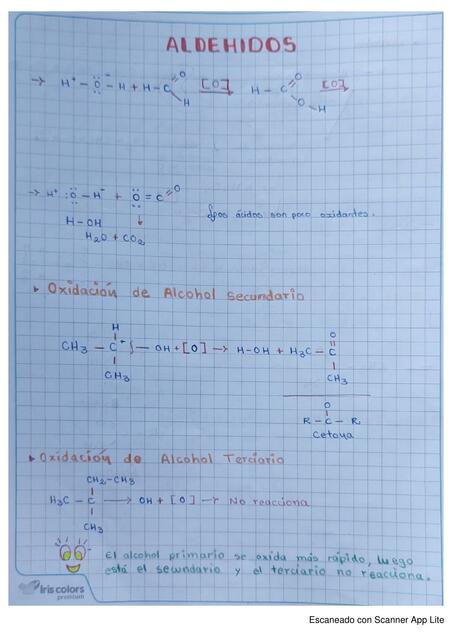 ALDEHIDOS
→ H⁺ - Ö⁻ - H + H - C =O [O] → H - C =O [O] →
H O - H
→ H⁺ :Ö - H⁻ + Ö = C =O
H - OH ↓ los ácidos son poco oxidantes.
H₂O + CO₂
▸ Oxidación de Alcohol secundario
H O
CH₃ - C⁺ - OH + [O] → H-OH + H₃C - C
CH₃ CH₃
O
R - C - R
cetona
▸ Oxidación de Alcohol Terciario
CH₂-CH₃
H₃C - C → OH + [O] → No reacciona
CH₃
El alcohol primario se oxida más rápido, luego
está el secundario y el terciario no reacciona.
Iris colors
premium
Escaneado con Scanner App Lite